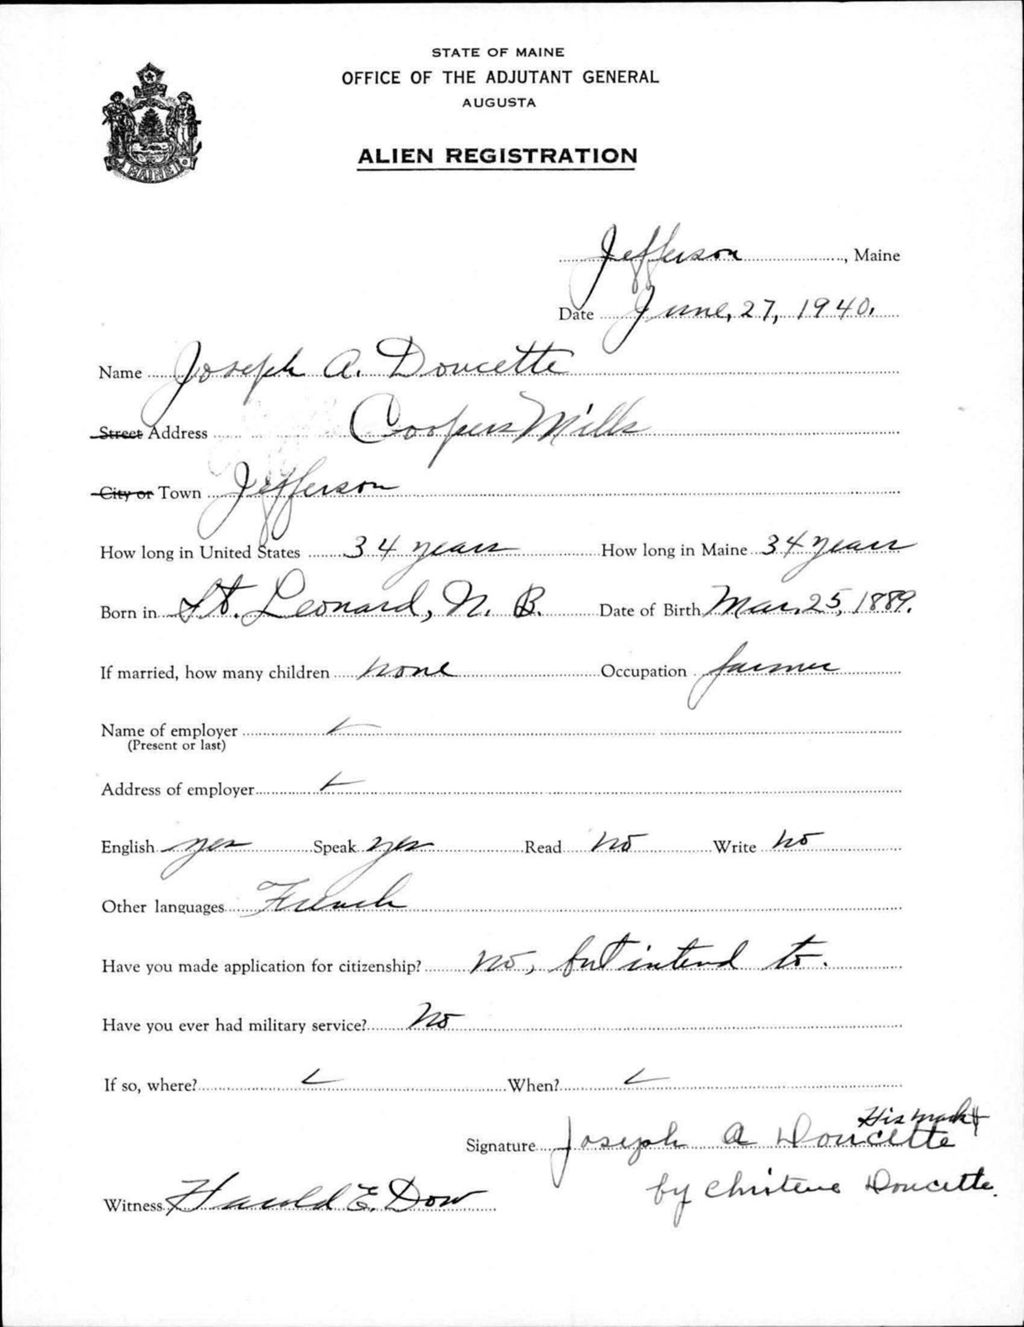 STATE OF MAINE
OFFICE OF THE ADJUTANT GENERAL
AUGUSTA
ALIEN REGISTRATION
MAINE
Jefferson, Maine
Date June, 27, 1940.
Name Joseph A. Doucette
Street Address Coopers Mills
City or Town Jefferson
How long in United States 34 years How long in Maine 34 years
Born in St. Leonard, N. B. Date of Birth Mar. 25, 1889.
If married, how many children none Occupation farmer
Name of employer
(Present or last)
Address of employer
English yes Speak yes Read no Write no
Other languages French
Have you made application for citizenship? no, but intend to.
Have you ever had military service? No
If so, where? When?
His mark
Signature Joseph A Doucette
by Christene Doucette.
Witness Harold E. Dow